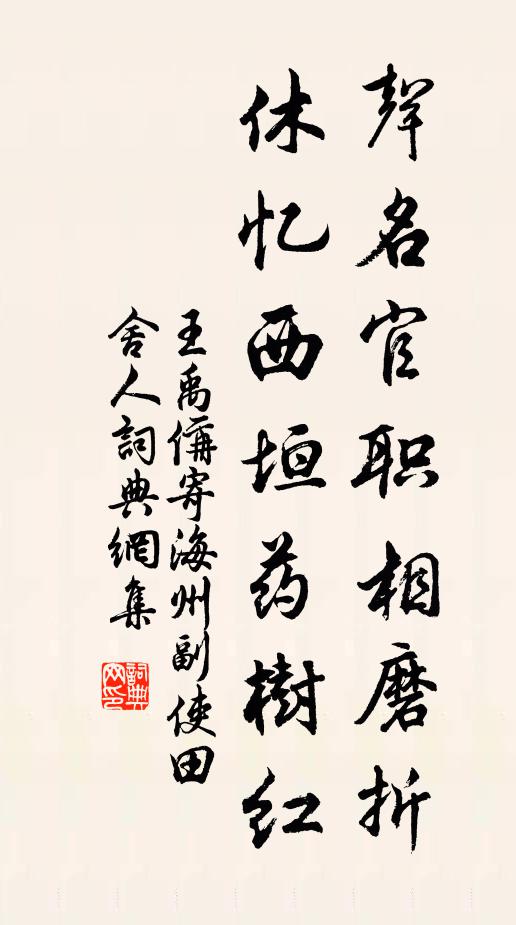 聲名官职相磨折
休忆西垣药樹红
王禹偁寄海州副使田
舍人詞典網集
詞典网印